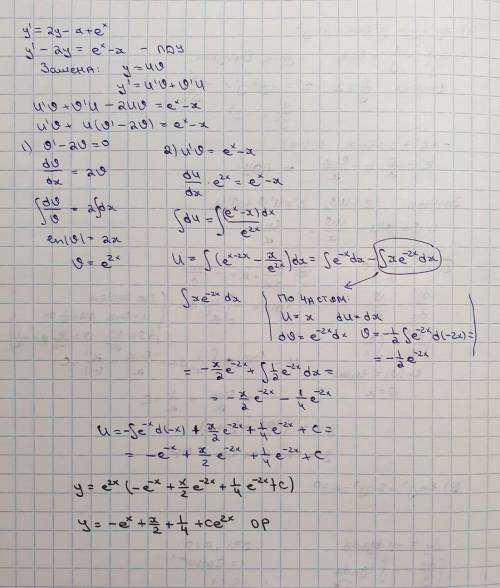 y' = 2y - x + eˣ
y' - 2y = eˣ - x - ЛДУ
Замена: y = uϑ
y' = u'ϑ + ϑ'u
u'ϑ + ϑ'u - 2uϑ = eˣ - x
u'ϑ + u(ϑ' - 2ϑ) = eˣ - x
1) ϑ' - 2ϑ = 0
dϑ/dx = 2ϑ
∫dϑ/ϑ = 2∫dx
ln(ϑ) = 2x
ϑ = e²ˣ
2) u'ϑ = eˣ - x
du/dx · e²ˣ = eˣ - x
∫du = ∫(eˣ - x)dx/e²ˣ
u = ∫(eˣ⁻²ˣ - x/e²ˣ)dx = ∫e⁻ˣdx - ∫xe⁻²ˣdx
∫xe⁻²ˣdx
по частям:
u = x du = dx
dϑ = e⁻²ˣdx ϑ = -1/2∫e⁻²ˣd(-2x) =
= -1/2e⁻²ˣ
= -x/2e⁻²ˣ + ∫1/2e⁻²ˣdx =
= -x/2e⁻²ˣ - 1/4e⁻²ˣ
u = -∫e⁻ˣd(-x) + x/2e⁻²ˣ + 1/4e⁻²ˣ + C =
= -e⁻ˣ + x/2e⁻²ˣ + 1/4e⁻²ˣ + C
y = e²ˣ(-e⁻ˣ + x/2e⁻²ˣ + 1/4e⁻²ˣ + C)
y = -eˣ + x/2 + 1/4 + Ce²ˣ ОР